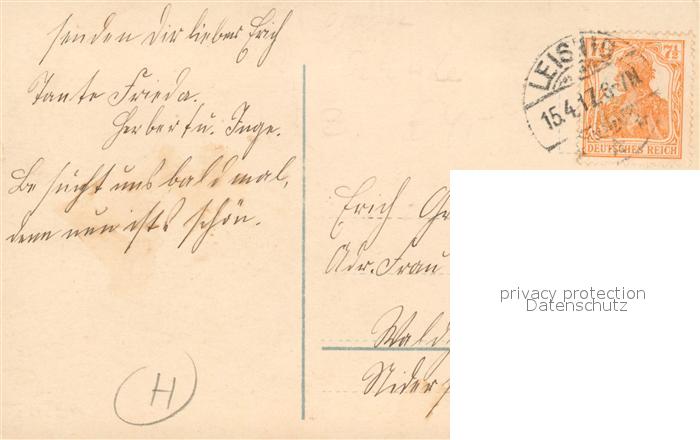 senden Dir lieber Erich
Tante Frieda.
Herbert u. Inge.
Besucht uns bald mal,
denn nun ists schön.
LEISNIG
15.4.17. 6-7N.
7½
DEUTSCHES REICH
Erich Gr
Adr. Frau
Wald
Nieder
privacy protection
Datenschutz
H